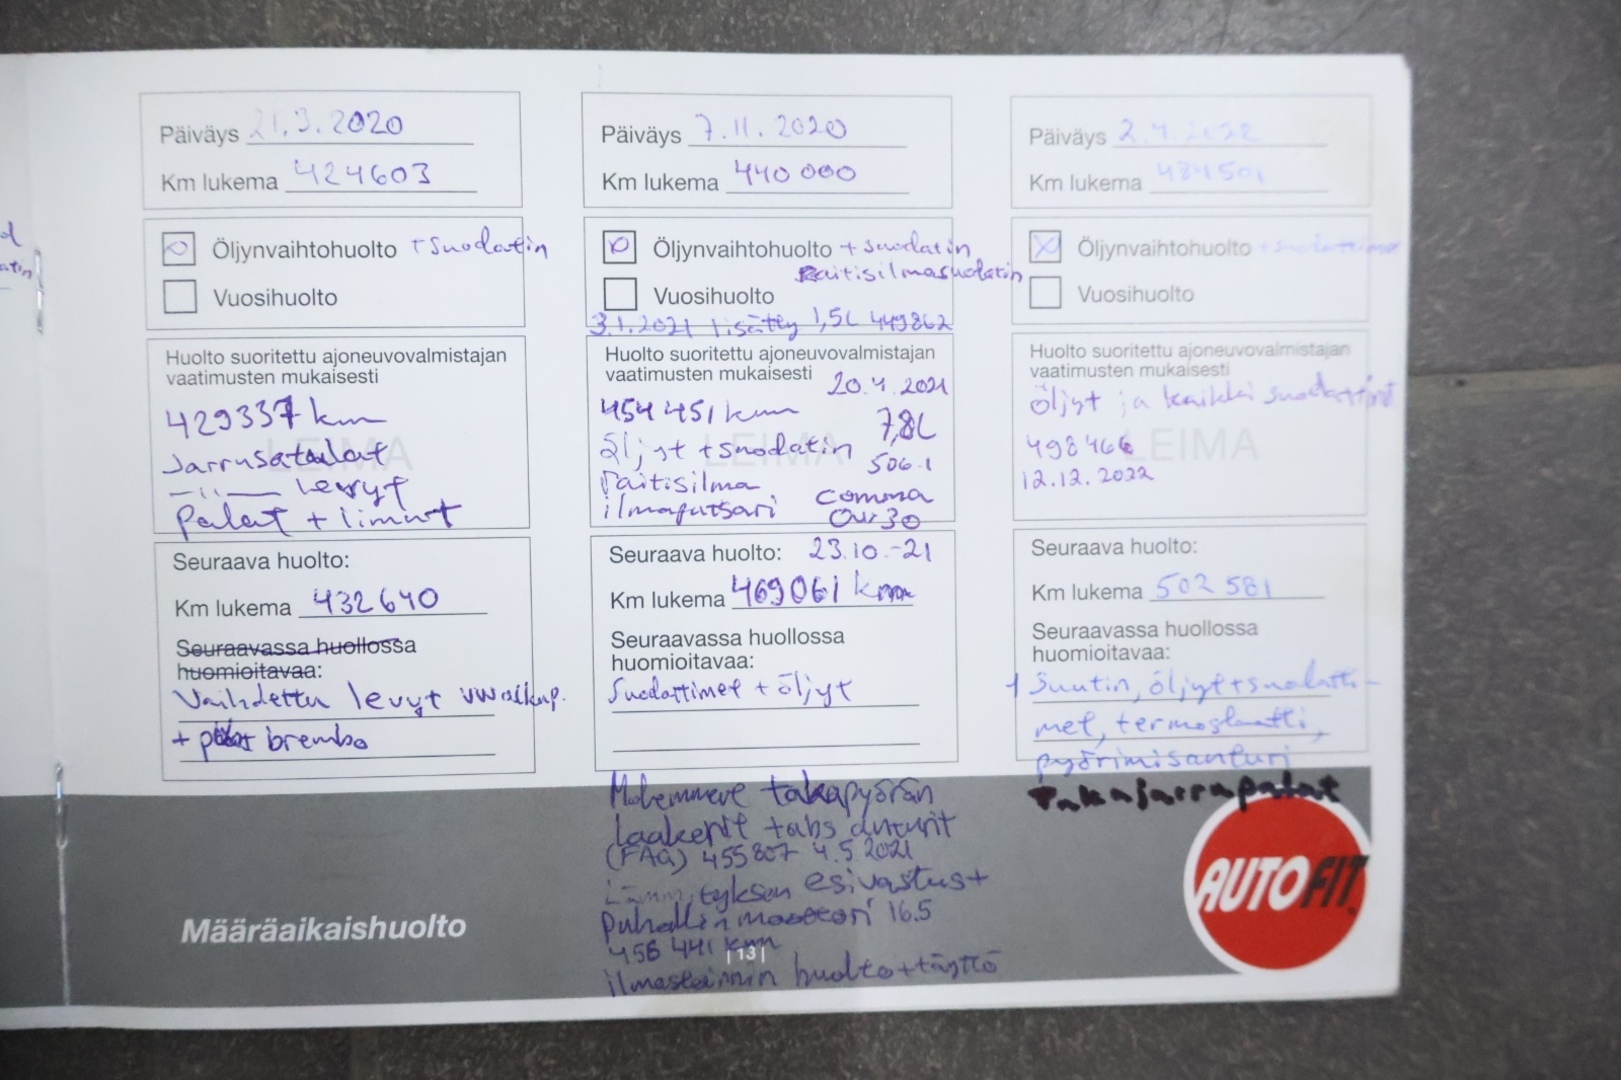 Päiväys 21.3.2020
Km lukema 424603
Öljynvaihtohuolto + suodatin
Vuosihuolto
Huolto suoritettu ajoneuvovalmistajan
vaatimusten mukaisesti
LEIMA
429337 km
Jarrusatulat
-ii- levyt
Palat + limut
Seuraava huolto:
Km lukema 432640
Seuraavassa huollossa
huomioitavaa:
Vaihdettu levyt
+ brembo
Päiväys 7.11.2020
Km lukema 440 000
Öljynvaihtohuolto + suodatin
Raitisilmasuodatin
Vuosihuolto
3.1.2021 lisätty 1,5L 449862
Huolto suoritettu ajoneuvovalmistajan
vaatimusten mukaisesti 20.4.2021
LEIMA
454 451 km 7,8L
öljyt + suodatin 506.1
Raitisilma
ilmaputsari comma
Seuraava huolto: 23.10.-21
Km lukema 469061 km
Seuraavassa huollossa
huomioitavaa:
Suodattimet + öljyt
Molemmat takapyörän
laakerit + abs anturit
(FAG) 455807 4.5.2021
esivastus +
Puhallinmoottori 16.5
456 441 km
ilmastoinnin huolto + täyttö
Päiväys 2.4.2022
Km lukema 484501
Öljynvaihtohuolto
Vuosihuolto
Huolto suoritettu ajoneuvovalmistajan
vaatimusten mukaisesti
LEIMA
öljyt ja kaikki suodattimet
498466
12.12.2022
Seuraava huolto:
Km lukema 502 581
Seuraavassa huollossa
huomioitavaa:
1 Suutin, öljyt + suodatti-
met, termostaatti,
pyörimisanturi
Takajarrupalat
Määräaikaishuolto
|13|
AUTOFIT